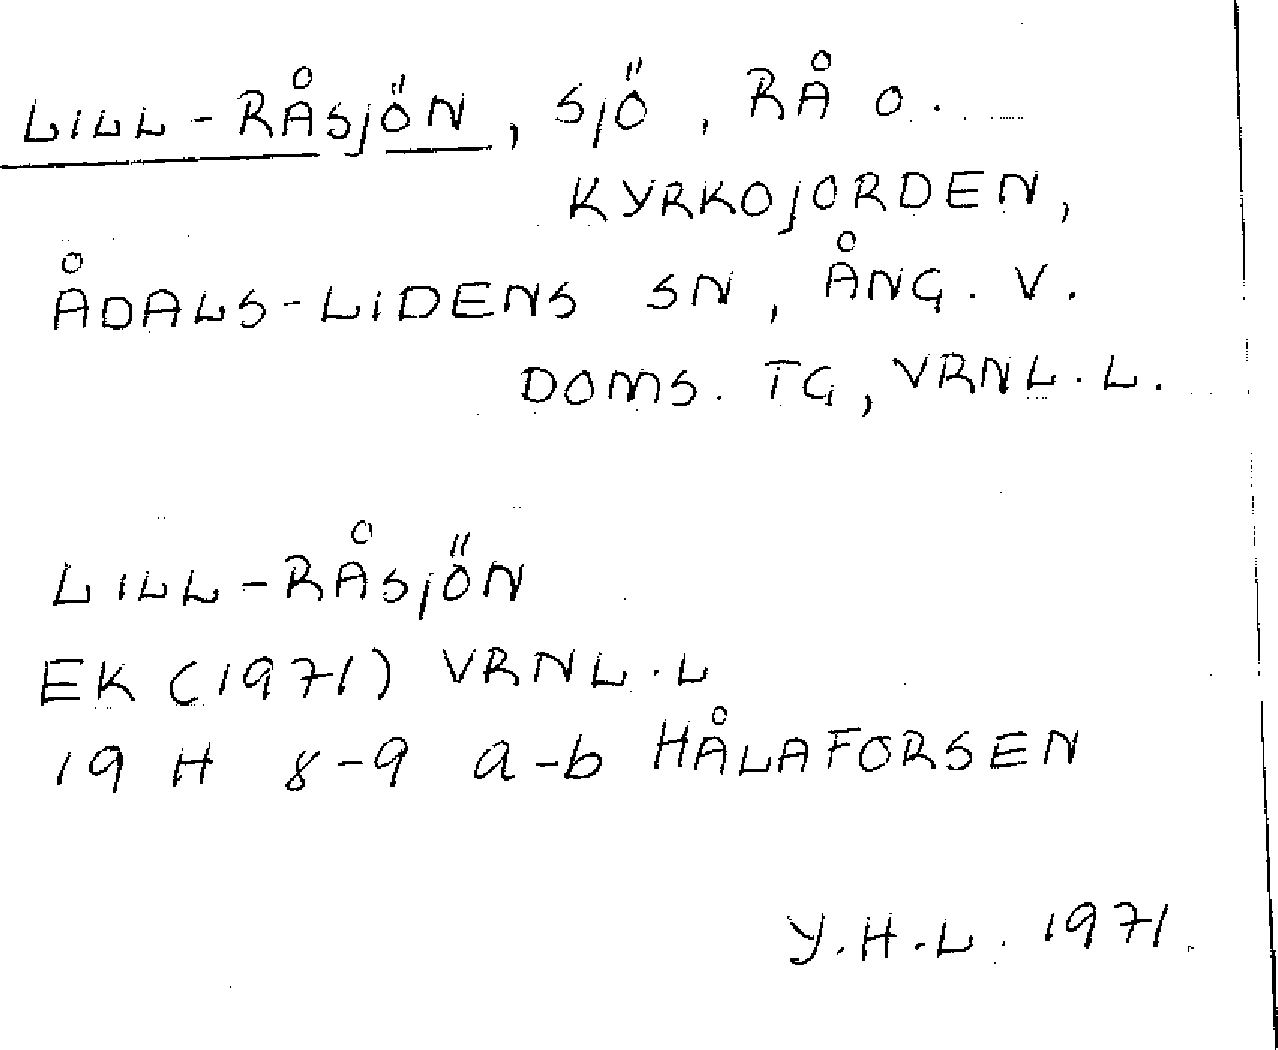 LILL-RÅSJÖN, SJÖ, RÅ O.
KYRKOJORDEN,
ÅDALS-LIDENS SN, ÅNG. V.
DOMS. TG, VRNL.L.
LILL-RÅSJÖN
EK (1971) VRNL.L
19 H 8-9 a-b HÅLAFORSEN
Y.H.L. 1971.